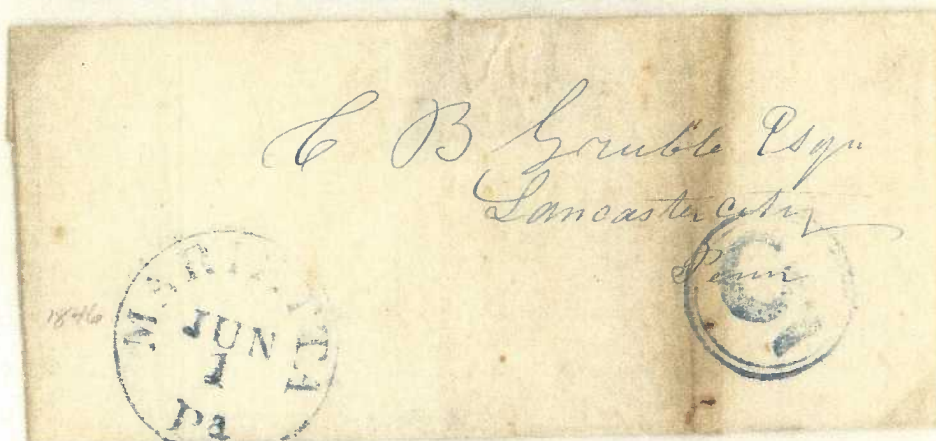 C B Grubb Esqu
Lancaster city
Penn
1846
MARIETTA
JUN
1
Pa